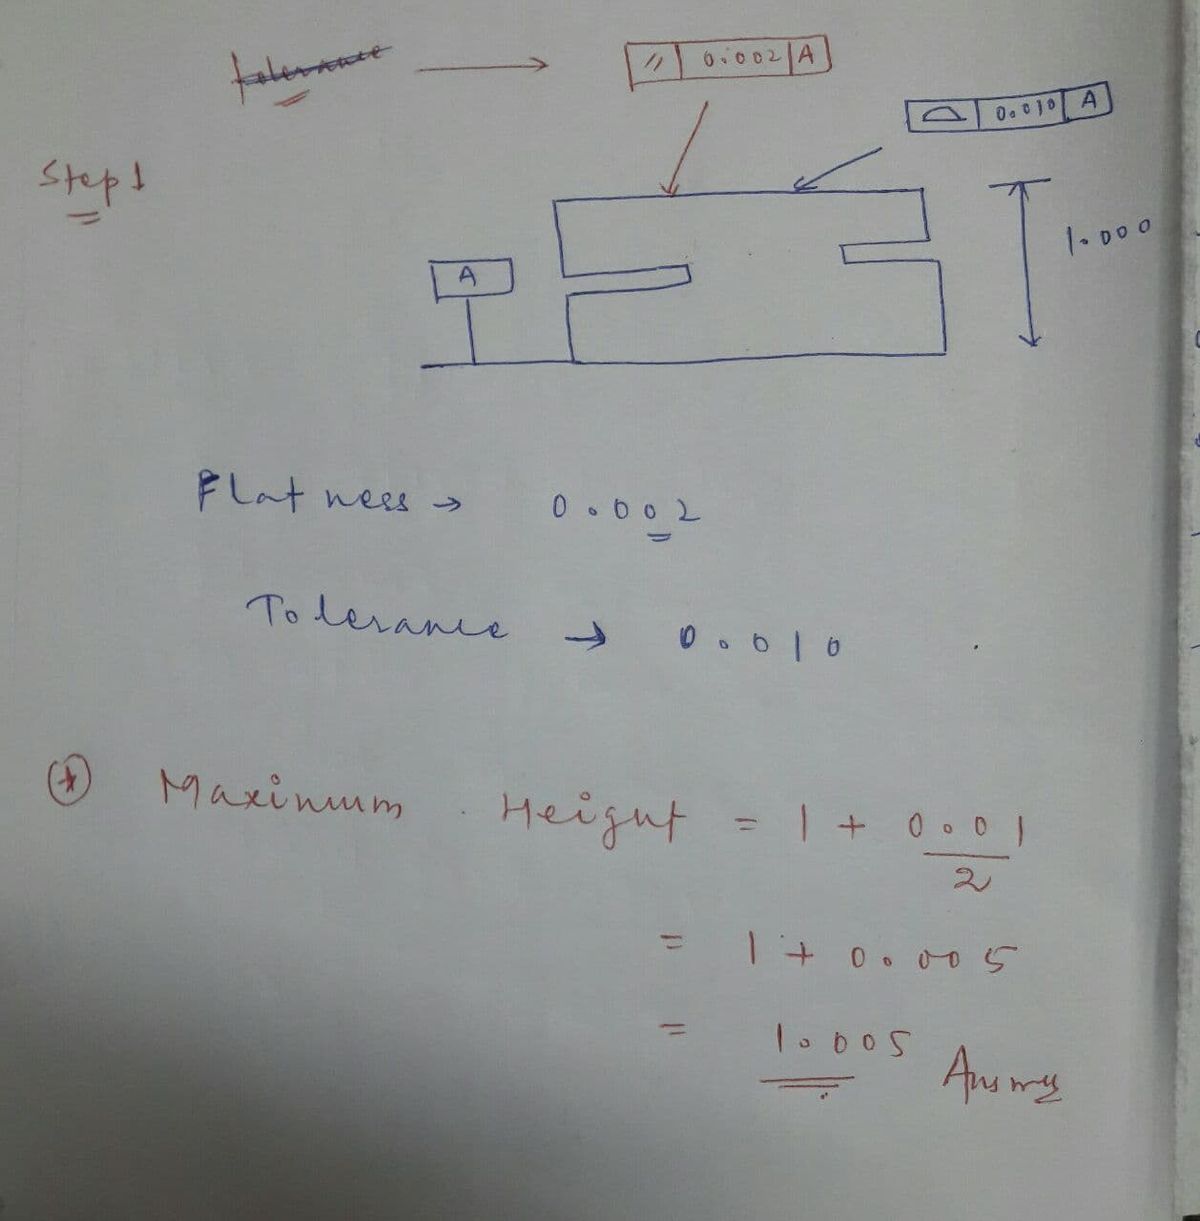 // 0.002 A
⌓ 0.010 A
Step 1
1.000
A
Flatness → 0.002
Tolerance → 0.010
* Maximum Height = 1 + 0.01
2
= 1 + 0.005
= 1.005